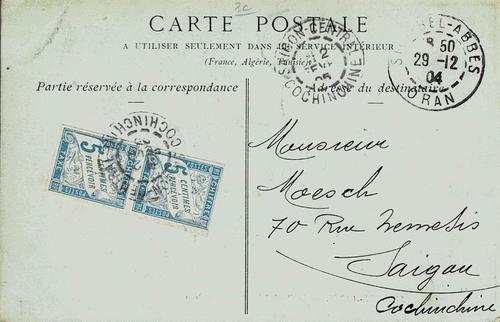 3c
CARTE POSTALE
A UTILISER SEULEMENT DANS LE SERVICE INTÉRIEUR
(France, Algérie, Tunisie)
Partie réservée à la correspondance
Adresse du destinataire
SAIGON-CENTRAL
2
05
COCHINCHINE
BEL-ABBÈS
8 50
29-12
04
ORAN
COCHINCHINE
5
CENTIMES
A PERCEVOIR
5
CENTIMES
A PERCEVOIR
Monsieur
Moesch
70 Rue Nemesis
Saigon
Cochinchine